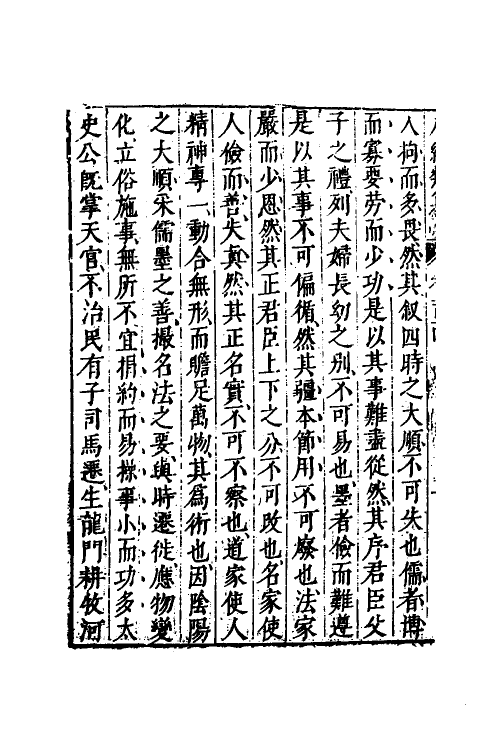 人拘而多畏然其叙四時之大順不可失也儒者博
而寡要劳而少功是以其事難盡從然其序君臣父
子之禮列夫婦長幼之别不可易也墨者儉而難遵
是以其事不可偏循然其彊本節用不可廢也法家
嚴而少恩然其正君臣上下之分不可改也名家使
人儉而善失真然其正名實不可不察也道家使人
精神專一動合無形而贍足萬物其為術也因陰陽
之大順采儒墨之善撮名法之要與時遷徙應物變
化立俗施事無所不宜指約而易操事小而功多太
史公旣掌天官不治民有子司馬遷生龍門耕牧河